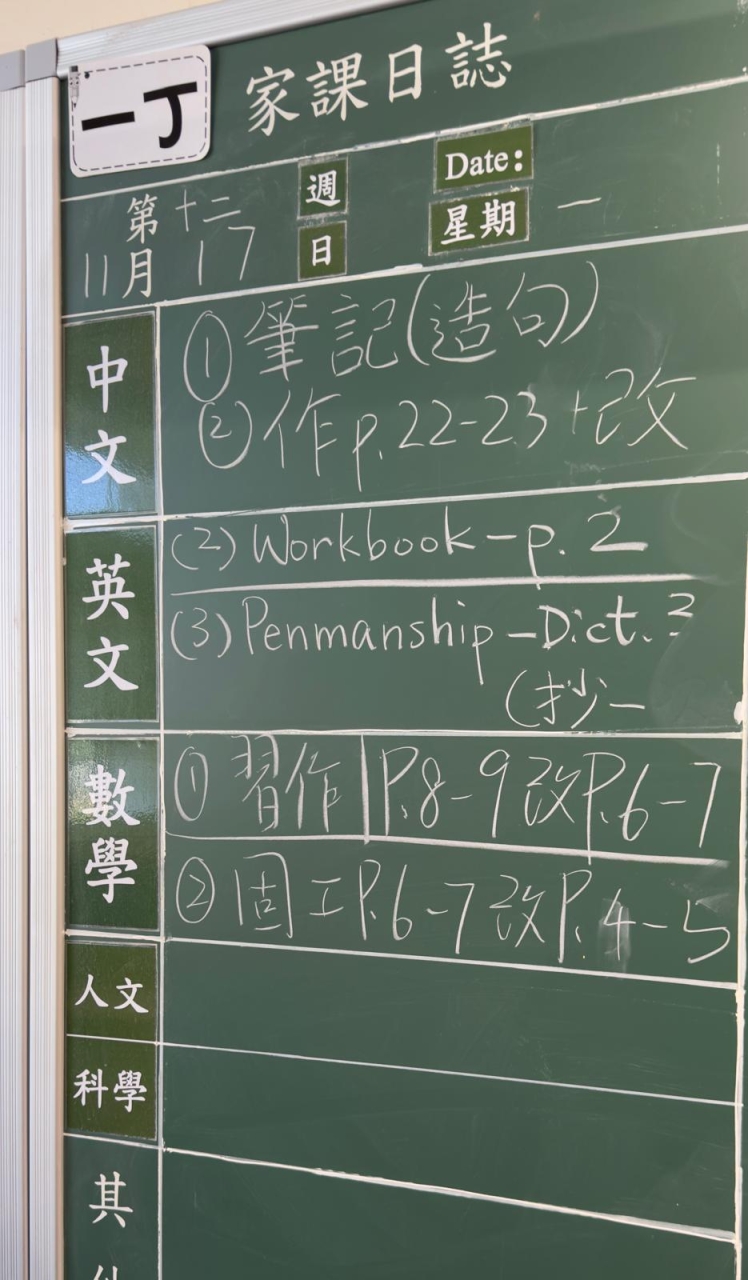 一丁
家課日誌
第十二週 Date:
11月17日 星期一
中文
①筆記(造句)
②作p.22-23+改
英文
(2) Workbook - p. 2
(3) Penmanship - Dict. 3
(抄一
數學
①習作 P.8-9改P.6-7
②固工P.6-7改P.4-5
人文
科學
其